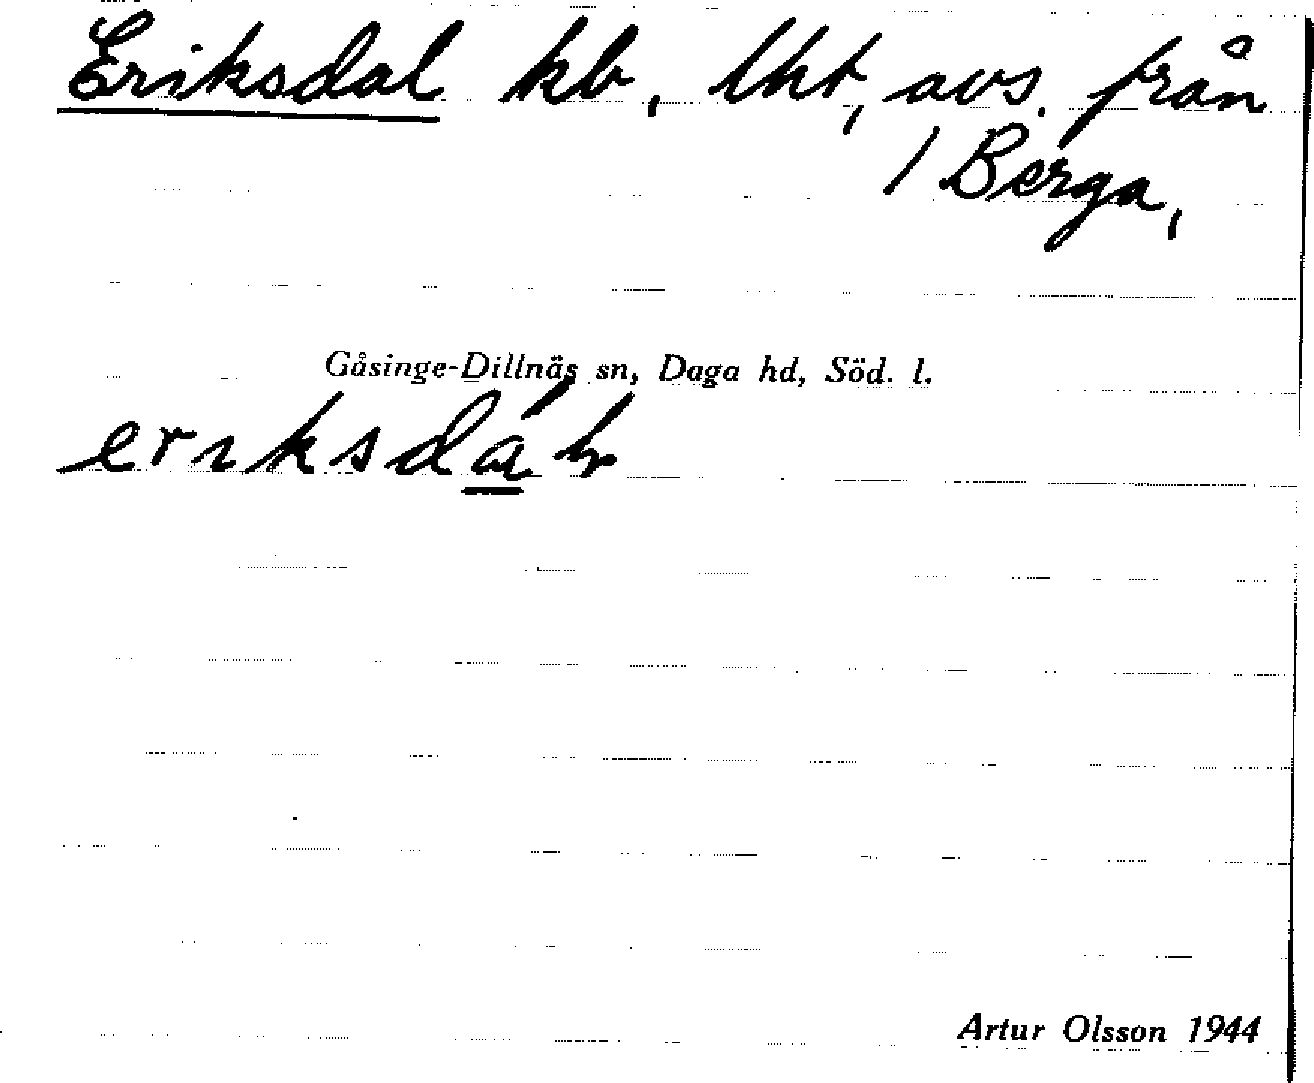 Eriksdal kb, lht, avs. från
/ Berga,
Gåsinge-Dillnäs sn, Daga hd, Söd. l.
Artur Olsson 1944